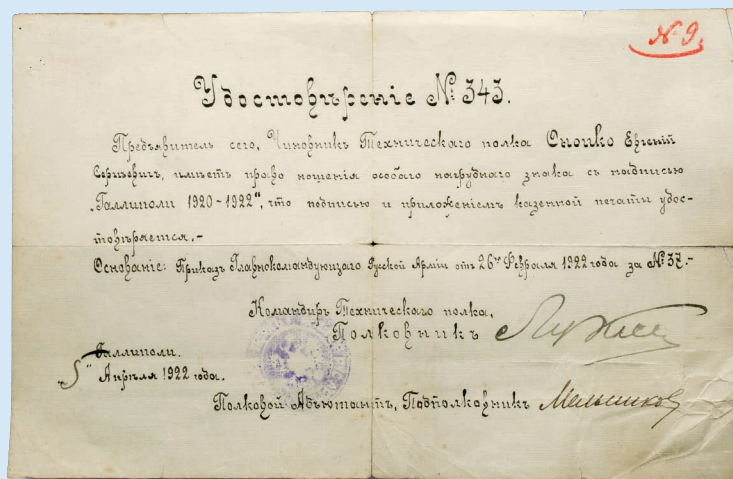 № 9.
Удостовѣренiе № 343.
Предъявитель сего, Чиновникъ Техническаго полка Сноико Евгенiй
Сергѣевичъ, имѣетъ право ношенiя особаго нагруднаго знака съ надписью
„Галлиполи 1920-1922", что подписью и приложенiемъ казенной печати удос-
товѣряется.-
Основанiе: Приказъ Главнокомандующаго Русской Армiи отъ 26го Февраля 1922 года за № 37.-
Командиръ Техническаго полка,
Полковникъ
Галлиполи.
„5" Апрѣля 1922 года.
Полковой Адъютантъ, Подполковникъ Мельников